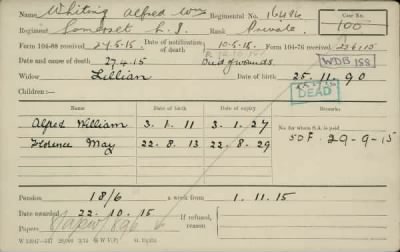 Name Whiting Alfred Wm Regimental No. 16496 Case No.
Regiment Somerset L.I. Rank Private 100
Form 104-88 received 29.5.15 Date of notification of death 10.5.15 Form 104-76 received 22.6.15
Date and cause of death 27.4.15 Died of wounds WDB 158
Widow Lillian Date of birth 25.11.90
Children:— DEAD
Date of birth Date of expiry
Alfred William 3.1.11 3.1.27 No. for whom S.A. is paid
Florence May 22.8.13 22.8.29 SOF. 29-9-15
Pension 18/6 a week from 1.11.15
Date awarded 22.10.15 If refused, reason
Papers